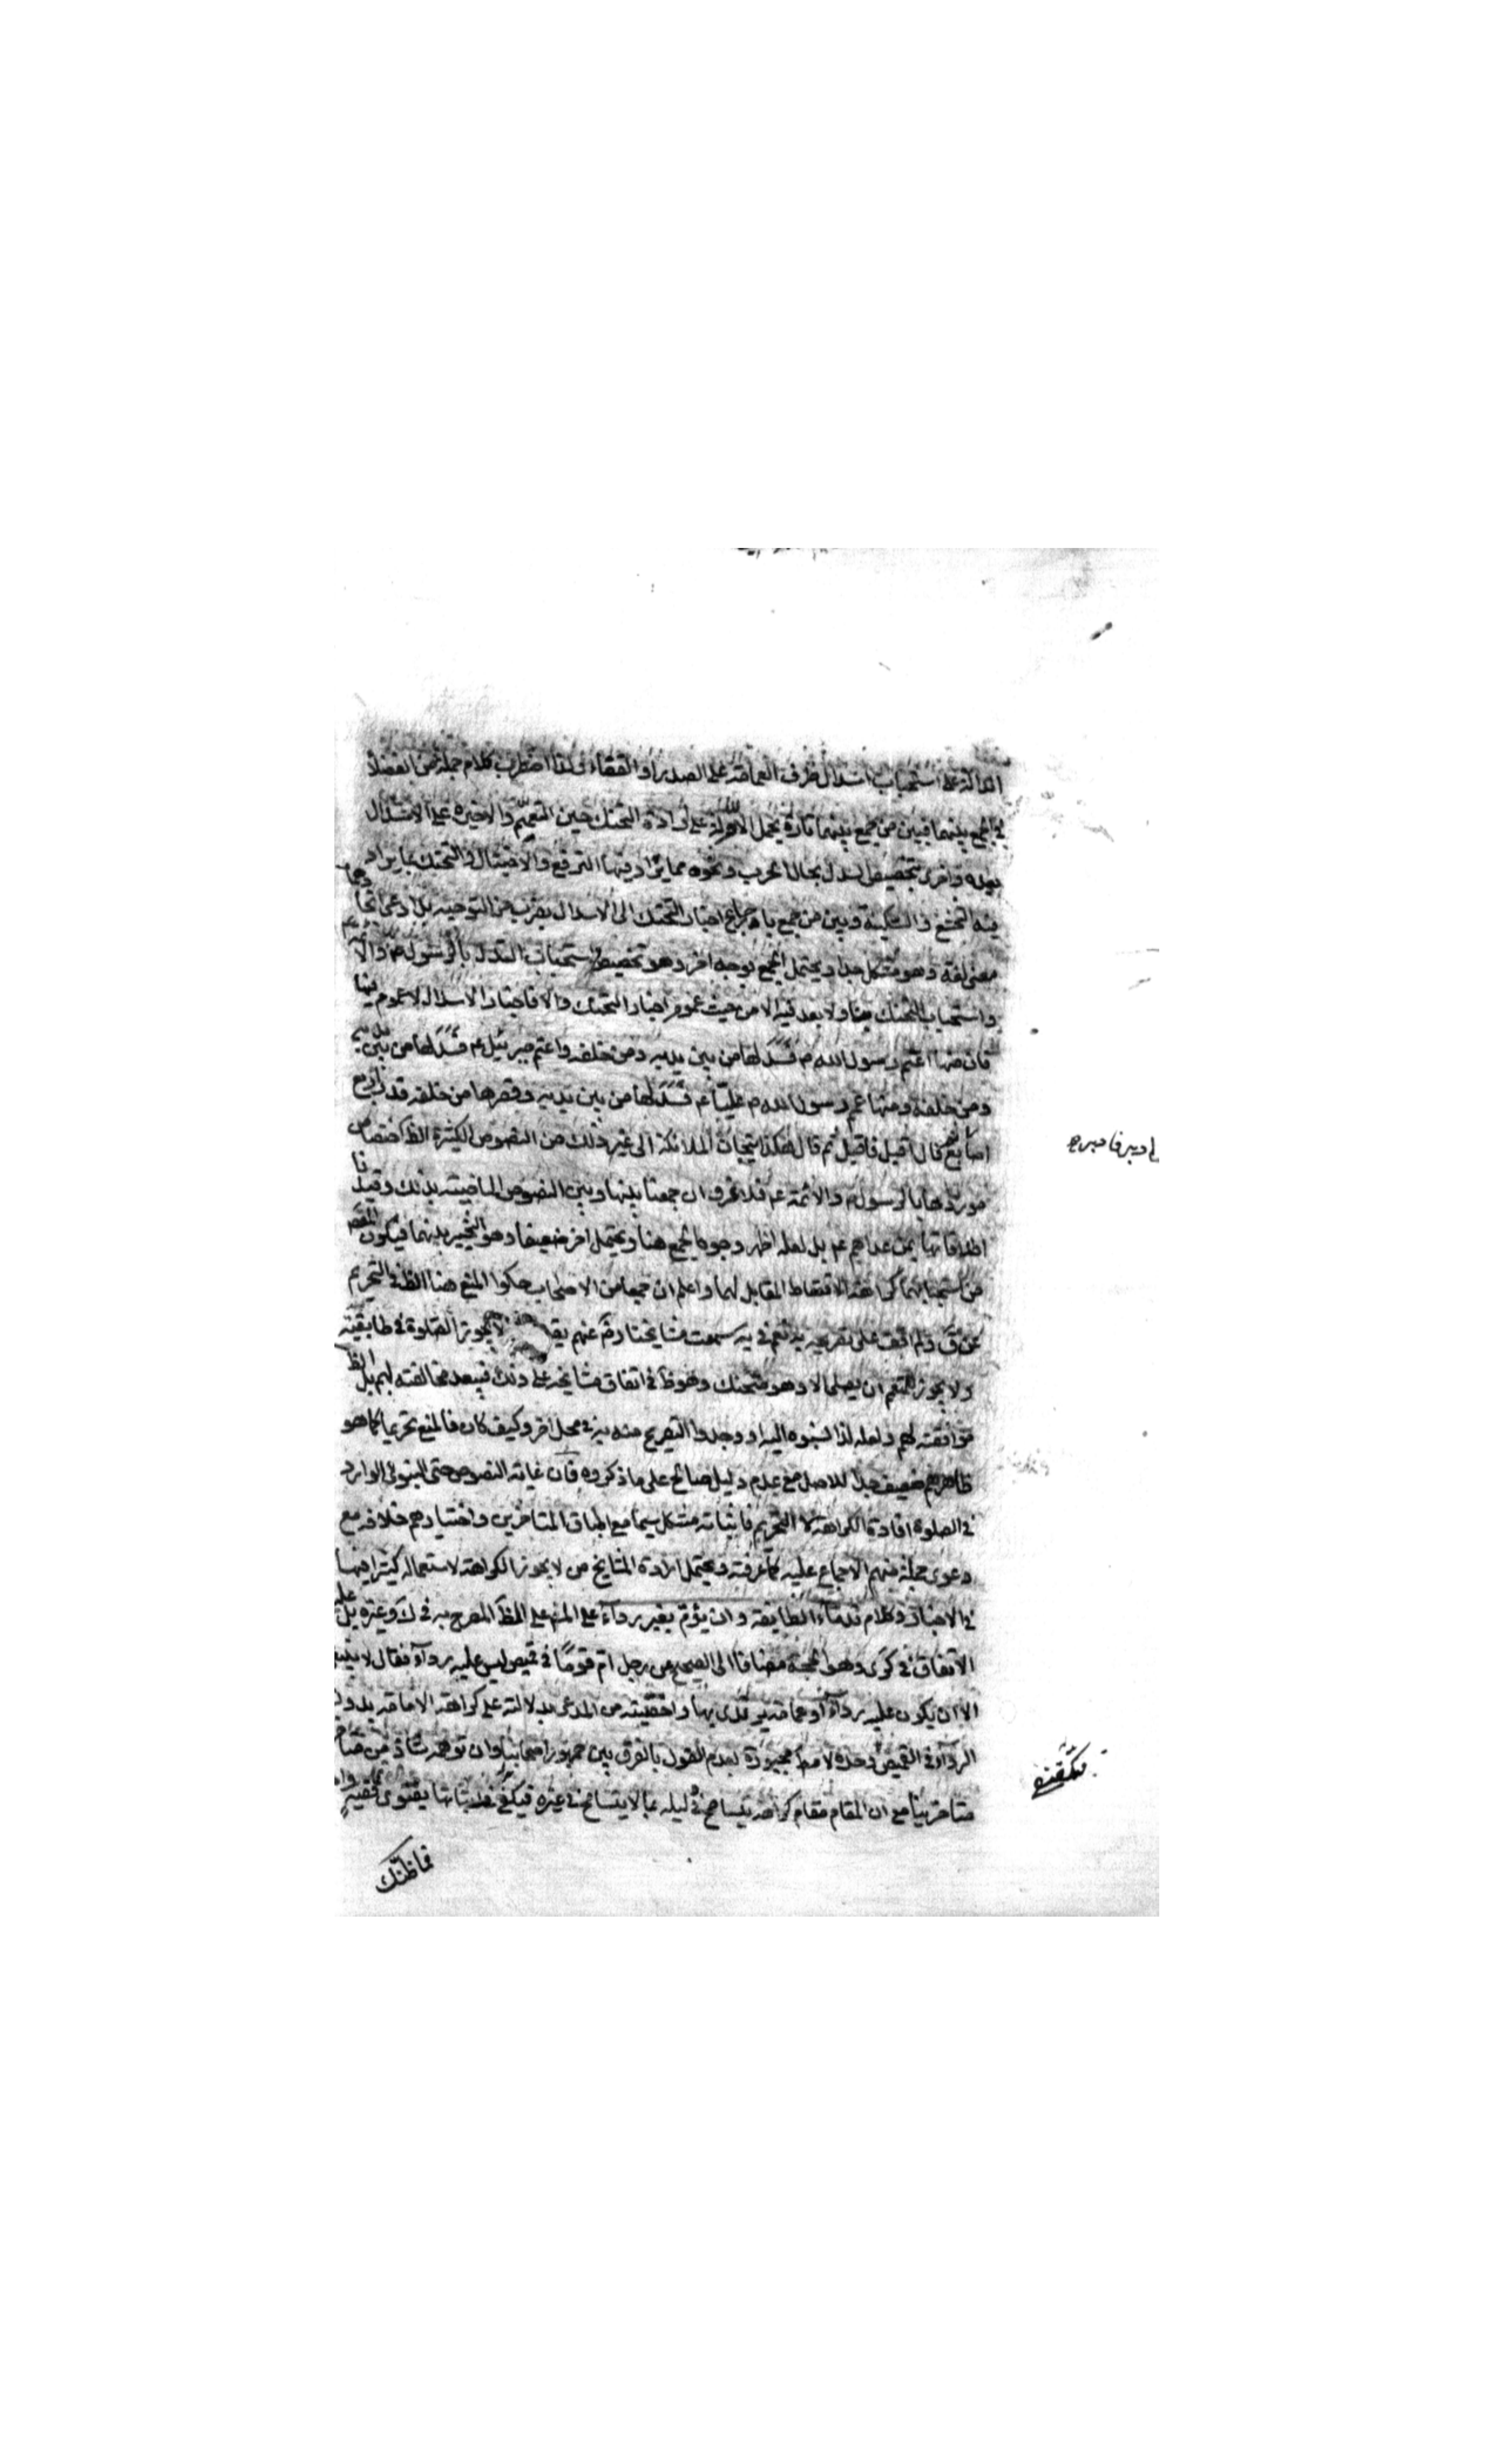 الدالة على استحباب اسدال طرف العمامة على الصدر او القفاء ولذا اضطرب كلام جملة من الفضلاء
في الجمع بينهما فبين من جمع بينهما تارة بحمل الاولة على ارادة التحنك حين التعمم والاخيرة على الاسدال
بعده واخرى بتخصيص السدل بحال الحرب ونحوه مما يراد فيها الترفع والاختيال والتحنك بما يراد
فيه التخشع والسكينة وبين من جمع بارجاع اخبار التحنك الى الاسدال بضرب من التوجيه بل ادعى اتحادهما
معنى لغة وهو مشكل جدا ويحتمل الجمع بوجه اخر وهو تخصيص استحباب السدل بالرسول ص والائمة عم
واستحباب التحنك بنا ولا بعد فيه الا من حيث عموم اخبار التحنك والا فاخبار الاسدال لا عموم فيها
فان منها اعتم رسول الله ص فسدلها من بين يديه ومن خلفه واعتم جبرئيل عم فسدلها من بين يديه
ومن خلفه ومنها عمم رسول الله ص عليا عم فسدلها من بين يديه وقصرها من خلفه قدر اربع
اصابع ثم قال اقبل فاقبل ثم قال هكذا تيجان الملائكة الى غير ذلك من النصوص الكثيرة الظ اختصاص
ادبر فادبر ص
موردها بالرسول ص والائمة عم فلا غرو ان جمعنا بينها وبين النصوص الماضية بذلك وقيدنا
اطلاقاتها بمن عداهم عم بل لعله اظهر وجوه الجمع هنا ويحتمل اخر ضعيفا وهو التخيير بينهما فيكون القصد
من استحبابهما كراهة الاقتعاط المقابل لهما واعلم ان جمعا من الاصحاب حكوا المنع هنا الظ في التحريم
عن ق ولم اقف على تصريحه به نعم في يه سمعت مشايخنا رض عنهم يقولون لا يجوز الصلوة في طابقية
ولا يجوز للمتعمم ان يصلي الا وهو متحنك وهو ظ في اتفاق مشايخه على ذلك فيبعد مخالفته لهم بل الظ
موافقته لهم ولعله لذا نسبوه اليه او وجدوا التصريح منه به في محل اخر وكيف كان فالمنع تحريما كما هو
ظاهرهم ضعيف جدا للاصل مع عدم دليل صالح على ما ذكروه فان غاية النصوص حتى النبوي الوارد
في الصلوة افادة الكراهة لا التحريم فاثباته مشكل سيما مع اطباق المتاخرين واختيارهم خلافه مع
دعوى جملة منهم الاجماع عليه كما عرفته ويحتمل ارادة المشايخ من لا يجوز الكراهة لاستعماله كثيرا فيها
في الاخبار وكلام قدماء الطايفة وان يؤم بغير رداء على المش على الظ المصرح به في ك وغيره بل عليه
الاتفاق في كرى وهو الحجة مضافا الى الصحيح عن رجل ام قوما في قميص ليس عليه رداء فقال لا ينبغي
الا ان يكون عليه رداء او عمامة يرتدى بها واخصيته من المدعى بدلالته على كراهة الامامة بدون
الرداء في القميص وحده لا مط مجبورة بعدم القول بالفرق بين جمهور اصحابنا وان توهمه شاذ من
متاخرينا مع ان المقام مقام كراهة يتسامح في دليله بما لا يتسامح في غيره فيكفي في اثباتها بفتوى فقيه
فما ظنك